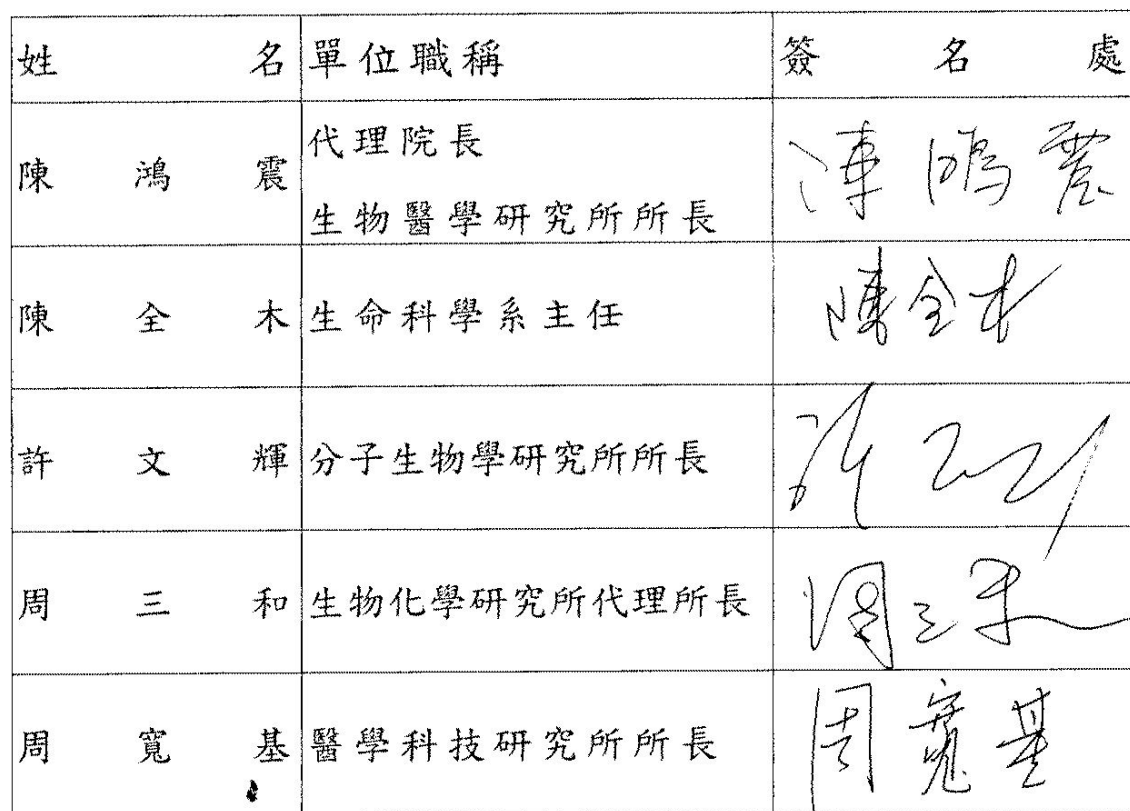 姓名 單位職稱 簽名處
陳鴻震 代理院長 陳鴻震
生物醫學研究所所長
陳全木 生命科學系主任 陳全木
許文輝 分子生物學研究所所長 許文輝
周三和 生物化學研究所代理所長 周三和
周寬基 醫學科技研究所所長 周寬基